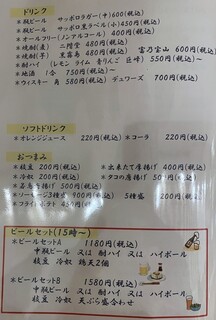 ドリンク
＊瓶ビール サッポロラガー(中)600円(税込)
＊瓶ビール サッポロ黒ラベル(小)450円(税込)
＊オールフリー(ノンアルコール) 400円(税込)
＊焼酎(麦) 二階堂 480円(税込)
＊焼酎(芋) 黒霧島 480円(税込) 富乃宝山 600円(税込)
＊酎ハイ (レモン ライム 巨峰) 550円(税込)~
＊地酒 1合 750円(税込)~
＊ウィスキー 角 580円(税込) デュワーズ 700円(税込)
ソフトドリンク
＊オレンジジュース 220円(税込) ＊コーラ 220円(税込)
おつまみ
＊枝豆 200円(税込) ＊出来たて厚揚げ 400円(税込)
＊冷奴 200円(税込) ＊タコの唐揚げ 500円(税込)
＊若鶏唐揚げ 500円(税込)
＊ソーセージ3種 900円(税込) 5種盛 1200円(税込)
＊フライドポテト 450円(税込)
ビールセット(15時〜)
＊ビールセットA 1180円(税込)
中瓶ビール 又は 酎ハイ 又は ハイボール
枝豆 冷奴 鶏天2個
＊ビールセットB 1580円(税込)
中瓶ビール 又は 酎ハイ 又は ハイボール
枝豆 冷奴 天ぷら盛合わせ